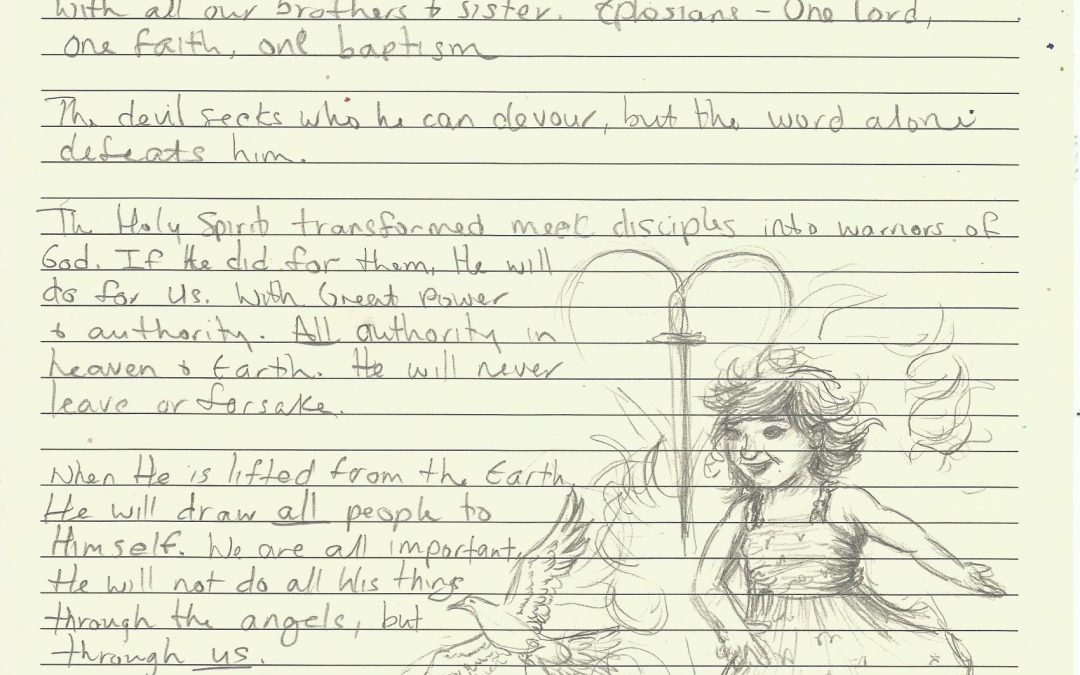 with all our brothers & sister. Ephosians - One Lord,
one faith, one baptism
The devil seeks who he can devour, but the word alone
defeats him.
The Holy Spirit transformed meek disciples into warriors of
God. If He did for them, He will
do for us. With Great power
& authority. All authority in
heaven & Earth. He will never
leave or forsake.
When He is lifted from the Earth,
He will draw all people to
Himself. We are all important,
He will not do all His things
through the angels, but
through us.